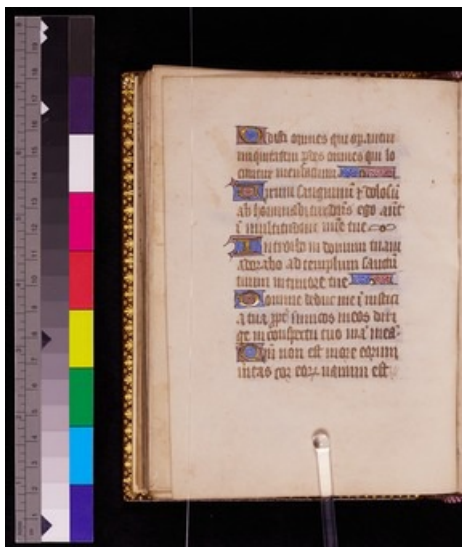 Odisti omnes qui operantur
iniquitatem pdes omnes qui lo
cuntur mendacium
Virum sanguinum ⁊ dolosu
ab hominabit dns ego aut
i multitudine mie tue
Introibo in domum tuam
adorabo ad templum sanctu
tuum in timore tuo
Domine deduc me i iusti
a tua inimicos meos diri
ge in conspectu tuo meā
Qm non est in ore eorum
ueritas cor eorum uanum est